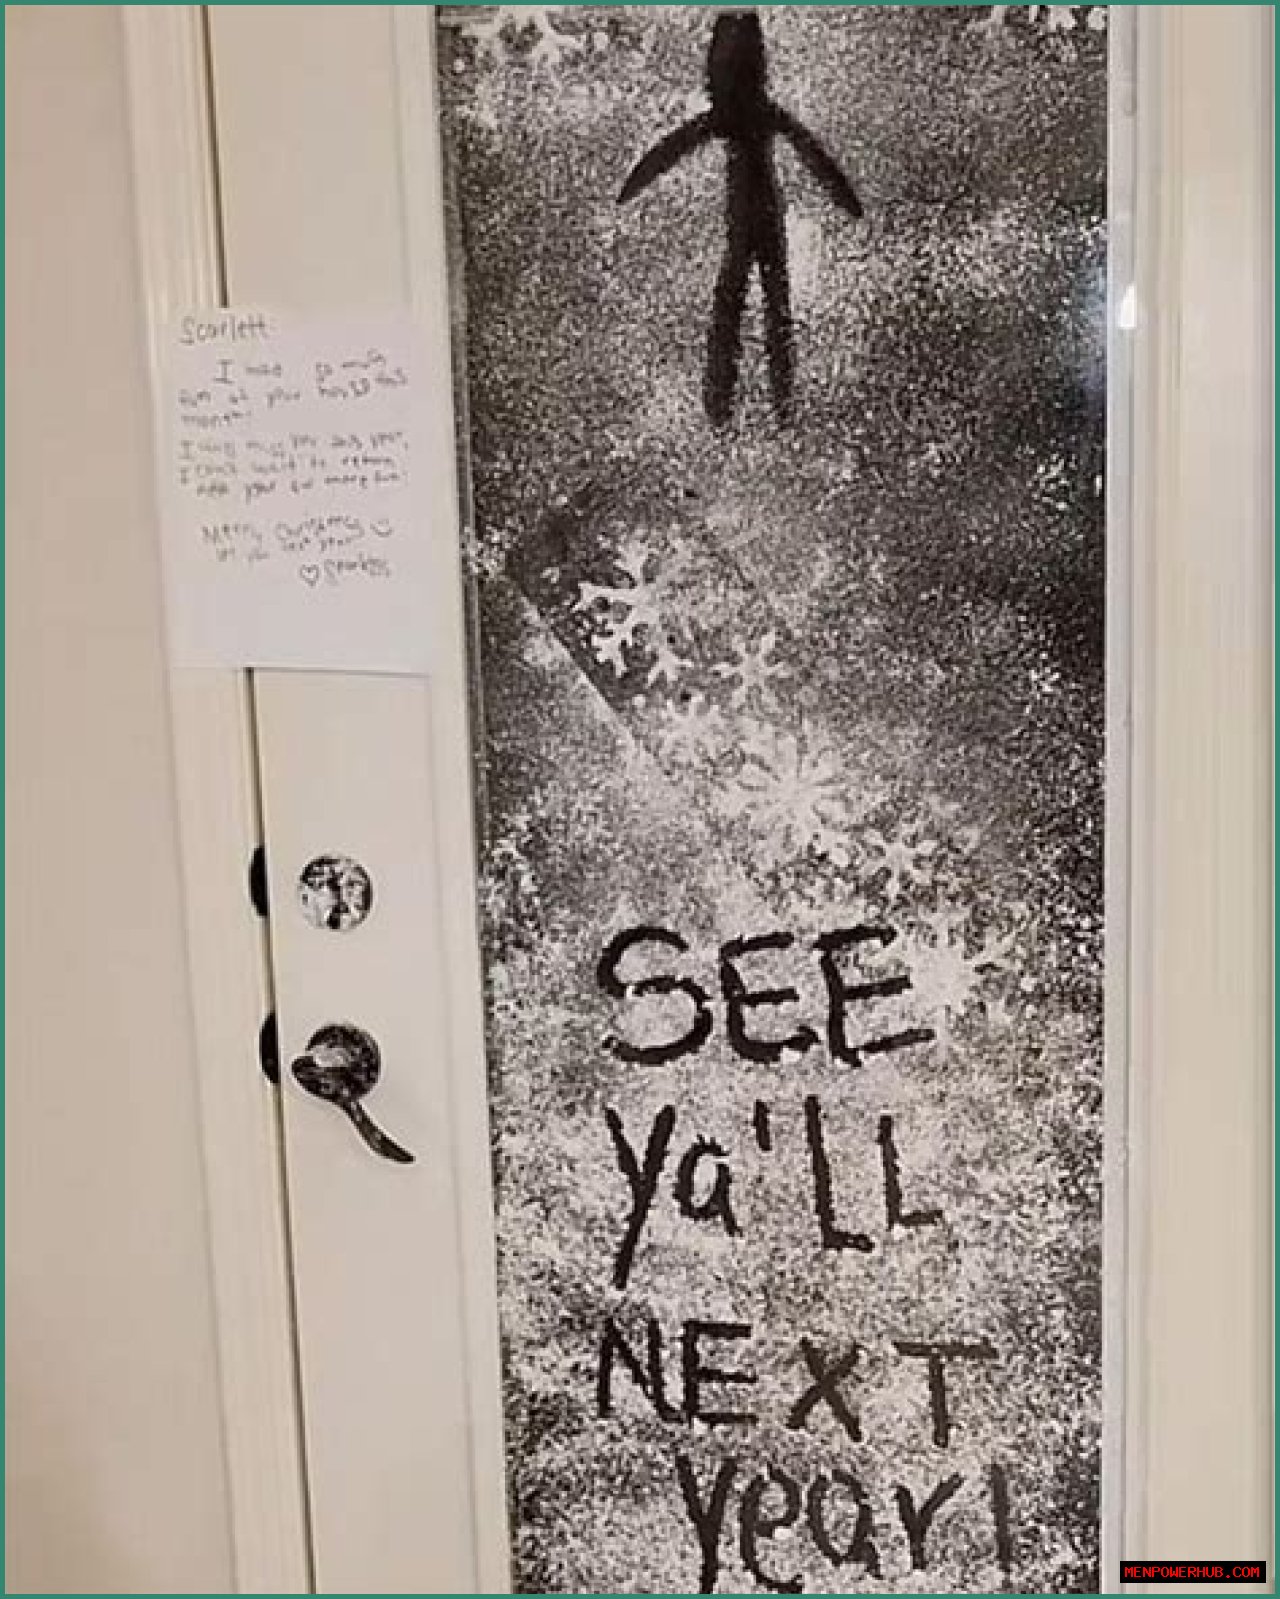 Scarlett
I had so much
fun at your house this
month!
I will miss you this year,
I can't wait to return
next year for more fun!
Merry Christmas
see you next year
♡ Sparkles
SEE
Ya'LL
NEXT
year!
MENPOWERHUB.COM